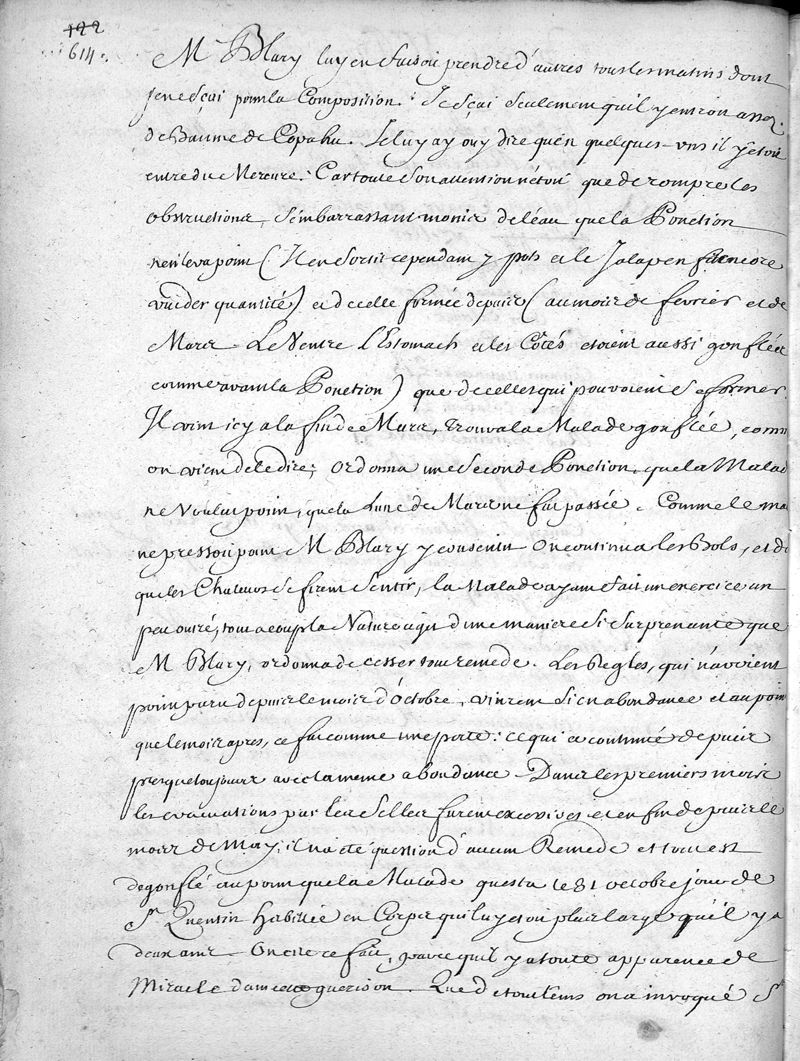 122
614.
Mr Blary luy en faisoit prendre d'autres tous les matins dont
je ne sçai point la Composition. Je sçai seulement quil y entroit assez
de Baume de Copahu. Je luy ay ouy dire qu'en quelques-uns il y étoit
entré du Mercure. Car toute son attention n'étoit que de rompre les
obstructions, s'embarrassant moins de l'éau que la Ponction
n'enleva point (Il en sortit cependant 7 pots et le Jalap en fit encore
vuider quantité) et de celle formée depuis (au mois de fevrier et de
Mars Le Ventre l'Estomach et les Côtés etoient aussi gonflés
comme avant la Ponction) que de celles qui pouvoient se former.
Il vint icy a la fin de Mars, trouva la Malade gonflée, comm
on vient de le dire; ordonna une seconde Ponction, que la Malad
ne Voulut point, que la Lune de Mars ne fut passée. Comme le ma
ne pressoit point M Blary y consentit on continua les Bols, et dé
que les Chaleurs se firent sentir, la Malade ayant fait un exercice un
peu outré, tout a coup la Nature agit d'une maniere si surprenante que
M Blary, ordonna de cesser tout remede. Les Regles, qui n'avoient
point paru depuis le mois d'Octobre, vinrent si en abondance et au poin
que le mois apres, ce fut comme une perte: ce qui a continué depuis
presque toujours avec la meme abondance. Dans les premiers mois
les evacuations par les Selles furent excessives et enfin depuis le
mois de May, il n'a été question d'aucun Remede et tout est
degonflé au point que la Malade questa le 31 octobre jour de
St Quentin habillée en Corps qui luy etoit plus large qu'il y a
deux ans. On cite ce fait, parce qu'il y a toute apparence de
Miracle dans cette guerison. Que de tout tems on a invoqué St